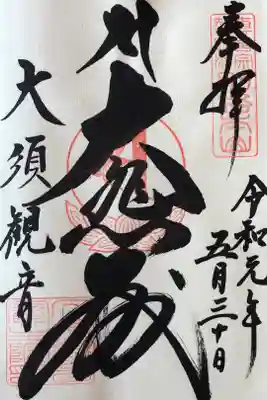 奉拝
令和元年
五月三十日
大悲殿
大須観音